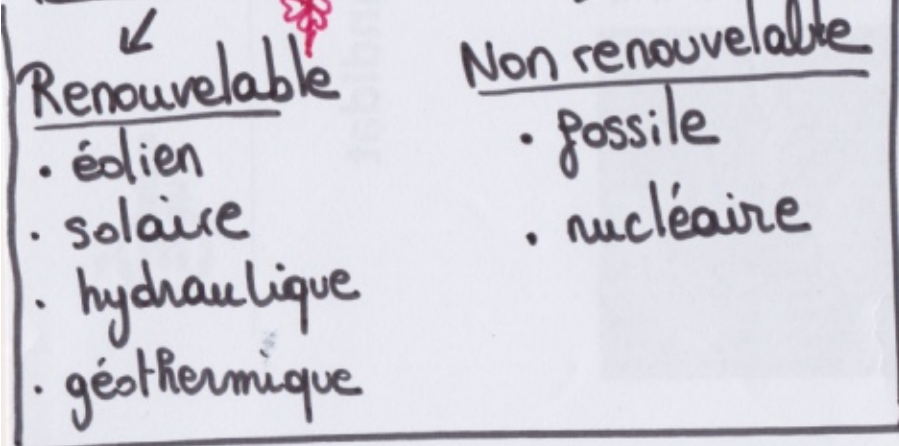 Renouvelable
· éolien
· solaire
· hydraulique
· géothermique
Non renouvelable
· fossile
· nucléaire